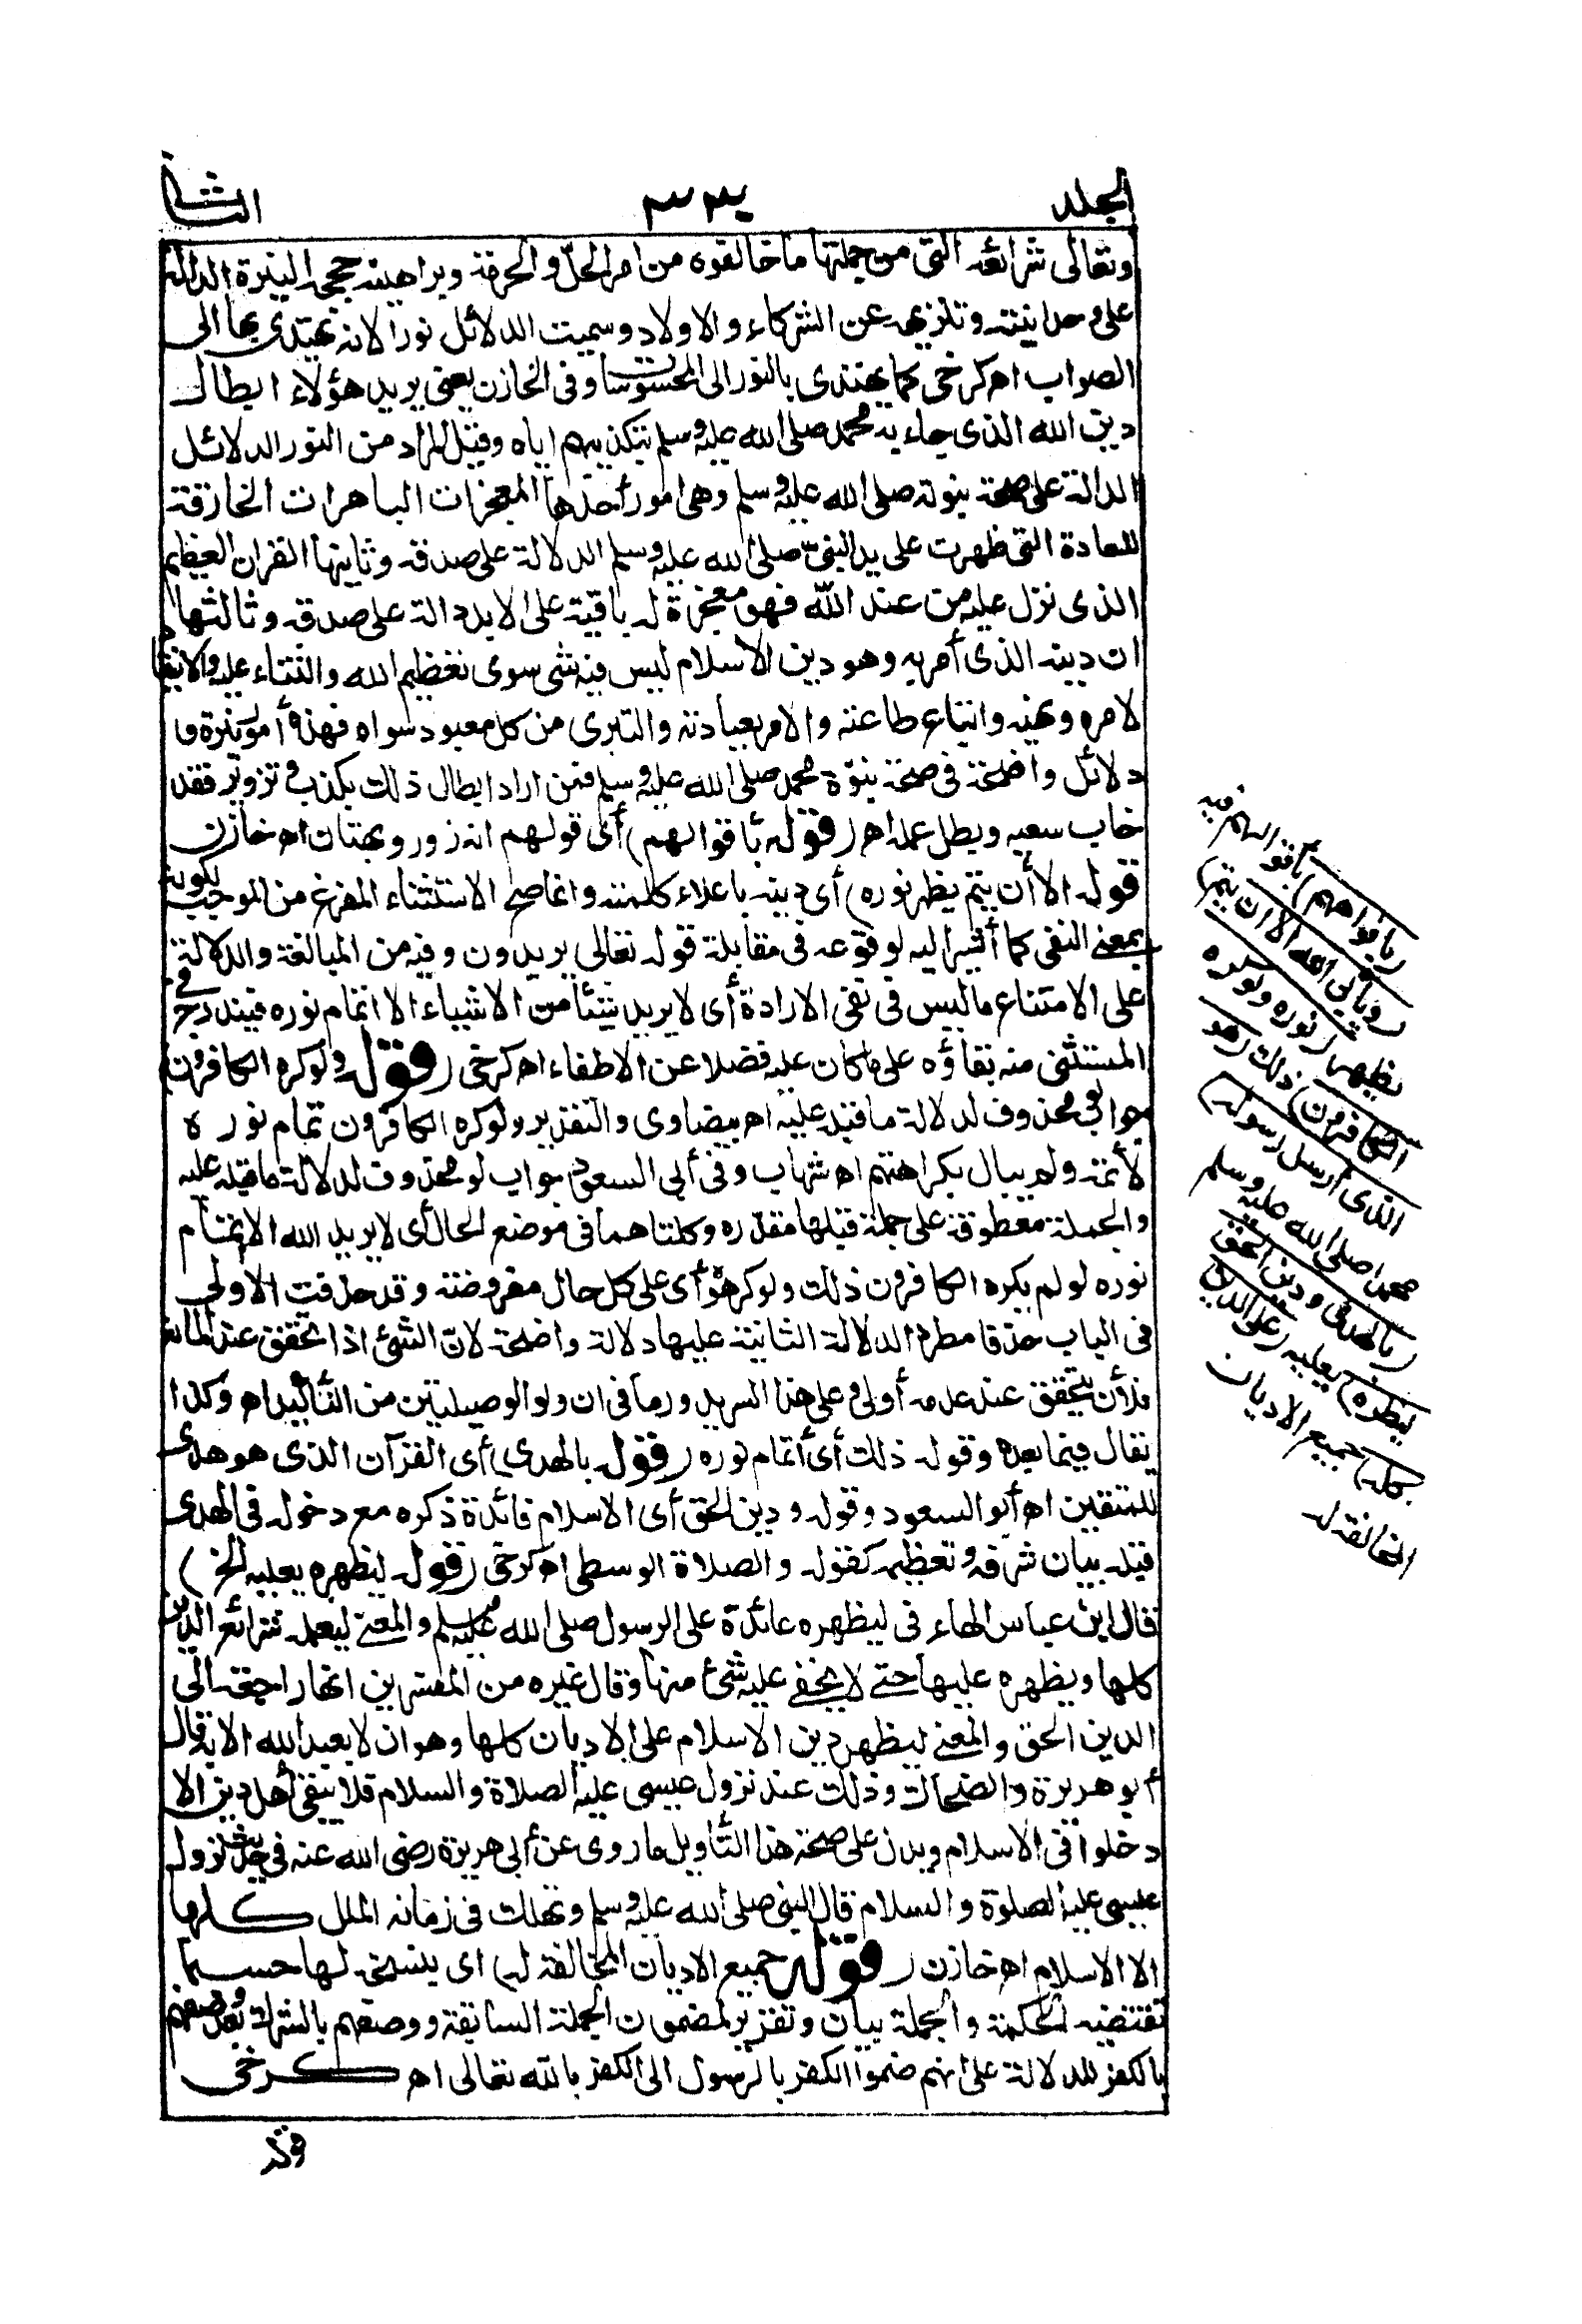 الجلد ٣٣٠ الثاني
وتعالى شرائعه التي من جملتها ما خالفوه من امر الحلّ والحرمة وبراهينه حججه النيرة الدالة
على وحدانيته وتنزيهه عن الشركاء والاولاد وسميت الدلائل نورا لانه يهتدى بها الى
الصواب اه كرخى كما يهتدى بالنور الى المحسوسات وفى الخازن يعنى يريد هؤلاء ابطال
دين الله الذى جاء به محمد صلى الله عليه وسلم بتكذيبهم اياه وقيل المراد من النور الدلائل
الدالة على صحة نبوته صلى الله عليه وسلم وهى امور أحدها المعجزات الباهرات الخارقة
للعادة التى ظهرت على يد النبىّ صلى الله عليه وسلم الدلالة على صدقه وثانيها القران العظيم
الذى نزل عليه من عند الله فهو معجزة له باقية على الابد دالة على صدقه وثالثها
ان دينه الذى أمر به وهو دين الاسلام ليس فيه شى سوى تعظيم الله والثناء عليه والانقيا
لامره ونهيه واتباع طاعته والامر بعبادته والتبرى من كل معبود سواه فهذه أمور نيرة و
دلائل واضحة فى صحة نبوّة محمد صلى الله عليه وسلم فمن اراد ابطال ذلك بكذب وتزوير فقد
خاب سعيه وبطل عمله اه (قوله بأقوالهم) أى قولهم انه زور وبهتان اه خازن
قوله الا أن يتم يظهر نوره) أى دينه باعلاء كلمته وانما صح الاستثناء المفرغ من الموجب لكونه
بمعنى النفى كما أشير اليه لوقوعه فى مقابلة قوله تعالى يريدون وفيه من المبالغة والدلالة
على الامتناع ما ليس فى نفى الارادة أى لا يريد شيئا من الاشياء الا اتمام نوره فيندرج فى
المستثنى منه بقاؤه على ما كان عليه فضلا عن الاطفاء اه كرخى (قوله ولو كره الكافرون)
جوابه محذوف لدلالة ما قبله عليه اه بيضاوى والتقدير ولو كره الكافرون تمام نوره
لأتمه ولم يبال بكراهتهم اه شهاب وفى أبى السعود جواب لو محذوف لدلالة ما قبله عليه
والجملة معطوفة على جملة قبلها مقدره وكلتاهما فى موضع الحال أى لا يريد الله الا اتمام
نوره لو لم يكره الكافرون ذلك ولو كرهوه أى على كل حال مفروضة وقد حذفت الاولى
فى الباب حذفا مطردا لدلالة الثانية عليها دلالة واضحة لانّ الشئ اذا تحقق عند المانع
فلأن يتحقق عند عدمه أولى وعلى هذا السر يدور ما فى ان ولو الوصليتين من التأكيد اه وكذا
يقال فيما بعده وقوله ذلك أى أتمام نوره (قوله بالهدى) أى القرآن الذى هو هدى
للمتقين اه أبو السعود وقوله ودين الحق أى الاسلام فائدة ذكره مع دخوله فى الهدى
قبله بيان شرفه وتعظيمه كقوله والصلاة الوسطى اه كرخى (قوله ليظهره يعليه الخ)
قال ابن عباس الهاء فى ليظهره عائدة على الرسول صلى الله عليه وسلم والمعنى ليعلمه شرائع الدين
كلها ويظهره عليها حتى لا يخفى عليه شئ منها وقال غيره من المفسرين انها راجعة الى
الدين الحق والمعنى ليظهر دين الاسلام على الاديان كلها وهو ان لا يعبد الله الا به قال
أبو هريرة والضحاك وذلك عند نزول عيسى عليه الصلاة والسلام فلا يبقى أهل دين الا
دخلوا فى الاسلام ويدل على صحة هذا التأويل ما روى عن أبى هريرة رضى الله عنه فى حديث نزول
عيسى عليه الصلوة والسلام قال النبى صلى الله عليه وسلم وتهلك فى زمانه الملل كلها
الا الاسلام اه خازن (قوله جميع الاديان المخالفة له) اى ينسخه لها حسبما
تقتضيه الحكمة والجملة بيان وتقرير لمضمون الجملة السابقة ووصفهم بالشرك بعد وصفهم
بالكفر للدلالة على انهم ضموا الكفر بالرسول الى الكفر بالله تعالى اه كرخى
بأفواههم) بأقوالهم فيه
(ويأبى الله الا ان يتم)
يظهر (نوره ولو كره
الكافرون) ذلك (هو
الذى أرسل رسوله)
محمدا صلى الله عليه وسلم
(بالهدى ودين الحق
ليظهره) يعليه (على الدين
كله) جميع الاديان
المخالفة له